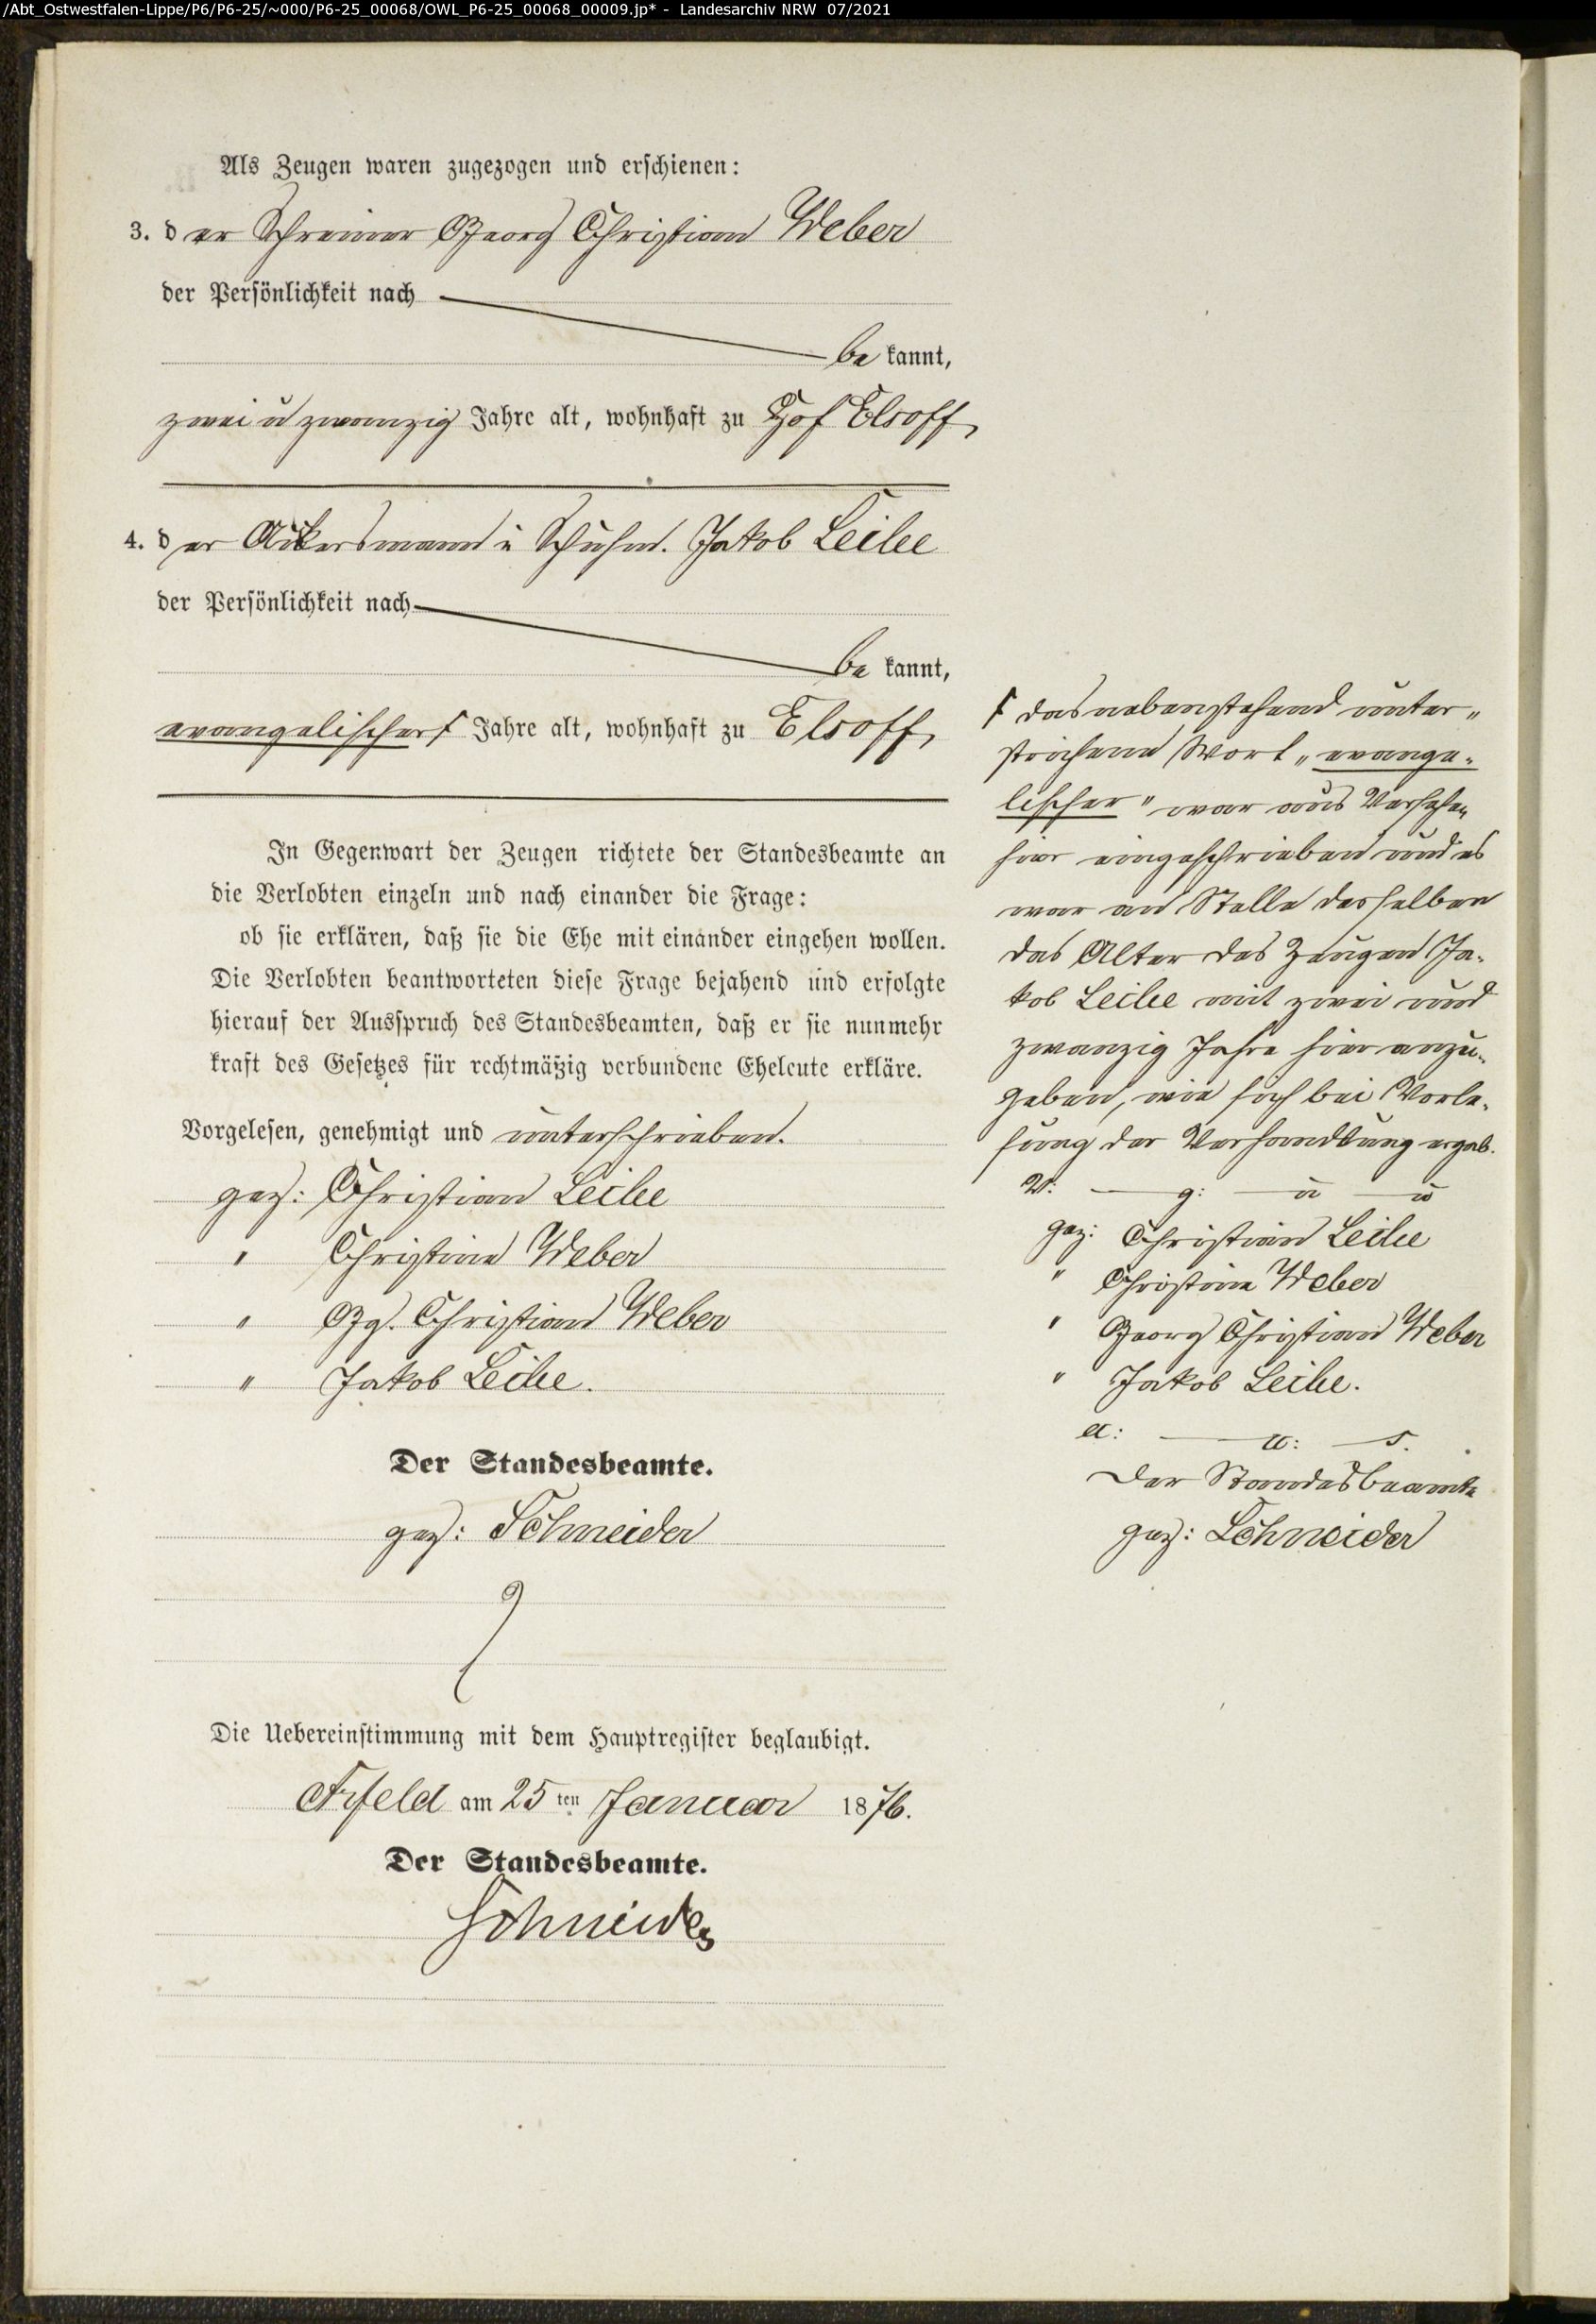 /Abt_Ostwestfalen-Lippe/P6/P6-25/~000/P6-25_00068/OWL_P6-25_00068_00009.jp* - Landesarchiv NRW 07/2021
Als Zeugen waren zugezogen und erschienen:
3. der Schreiner Georg Christian Weber
der Persönlichkeit nach
be kannt,
zwei u zwanzig Jahre alt, wohnhaft zu Hof Elsoff,
4. der Ackersmann u Schuhm. Jakob Leile
der Persönlichkeit nach
be kannt,
evangelischer Jahre alt, wohnhaft zu Elsoff,
In Gegenwart der Zeugen richtete der Standesbeamte an
die Verlobten einzeln und nach einander die Frage:
ob sie erklären, daß sie die Ehe mit einander eingehen wollen.
Die Verlobten beantworteten diese Frage bejahend und erfolgte
hierauf der Ausspruch des Standesbeamten, daß er sie nunmehr
kraft des Gesetzes für rechtmäßig verbundene Eheleute erkläre.
Vorgelesen, genehmigt und unterschrieben.
gez: Christian Leile
" Christine Weber
" Gg. Christian Weber
" Jakob Leile.
Der Standesbeamte.
gez: Schneider
Die Uebereinstimmung mit dem Hauptregister beglaubigt.
Arfeld am 25ten Januar 1876.
Der Standesbeamte.
Schneider
das nebenstehend unter„
strichene Wort „evange-
lischer" war aus Versehen
hier eingeschrieben und es
war an Stelle desselben
das Alter des Zeugen Ja-
kob Leile mit zwei und
zwanzig Jahre hier anzu-
geben, wie sich bei Vorle-
sung der Verhandlung ergab.
V: — g: — u — u
gez: Christian Leile
" Christine Weber
" Georg Christian Weber
" Jakob Leile.
a: — u: — s.
Der Standesbeamte
gez: Schneider